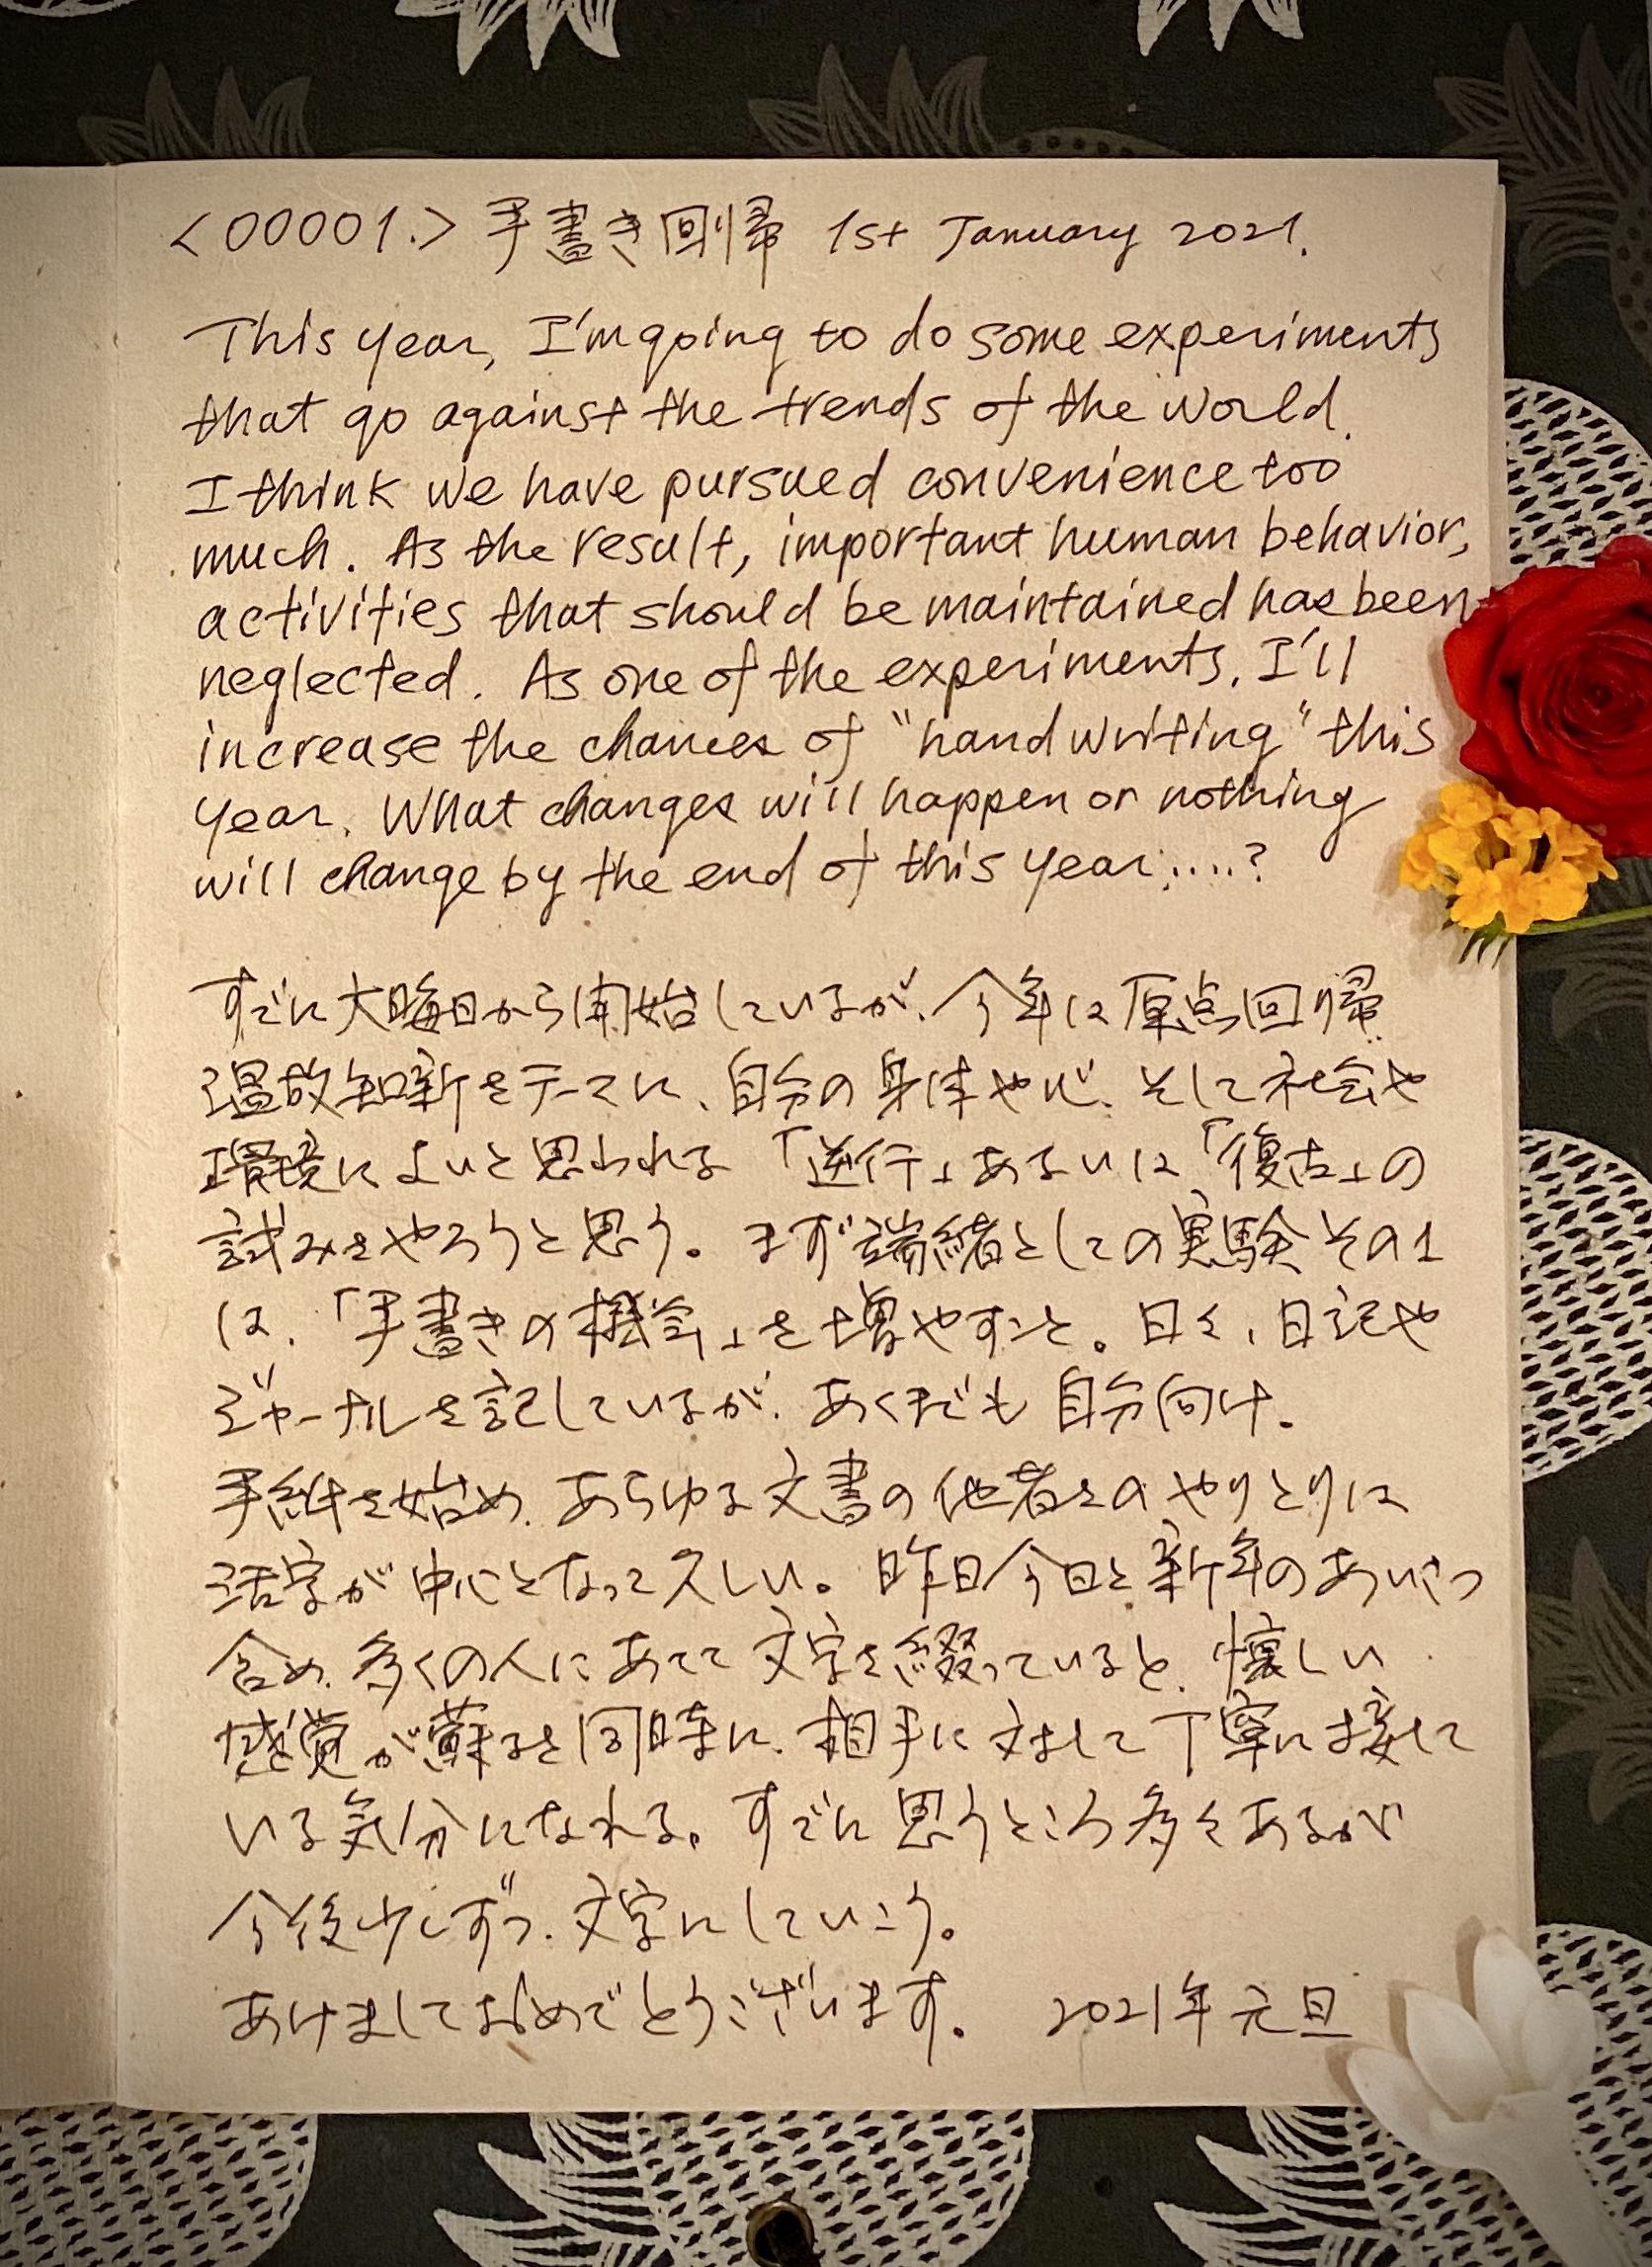 <00001.> 手書き回帰 1st January 2021.
This year, I'm going to do some experiments
that go against the trends of the world.
I think we have pursued convenience too
much. As the result, important human behavior,
activities that should be maintained has been
neglected. As one of the experiments, I'll
increase the chances of "handwriting" this
year. What changes will happen or nothing
will change by the end of this year.....?
すでに大晦日から開始しているが、今年は原点回帰
温故知新をテーマに、自分の身体や心、そして社会や
環境によいと思われる「逆行」あるいは「復古」の
試みをやろうと思う。まず端緒としての実験その1
は、「手書きの機会」を増やすこと。日々、日記や
ジャーナルを記しているが、あくまでも自分向け。
手紙を始め、あらゆる文書の他者とのやりとりは
活字が中心となって久しい。昨日今日と新年のあいさつ
含め、多くの人にあてて文字を綴っていると、懐しい
感覚が蘇ると同時に、相手に対して丁寧に接して
いる気分になれる。すでに思うところ多々あるが
今後少しずつ、文字にしていこう。
あけましておめでとうございます。 2021年元旦